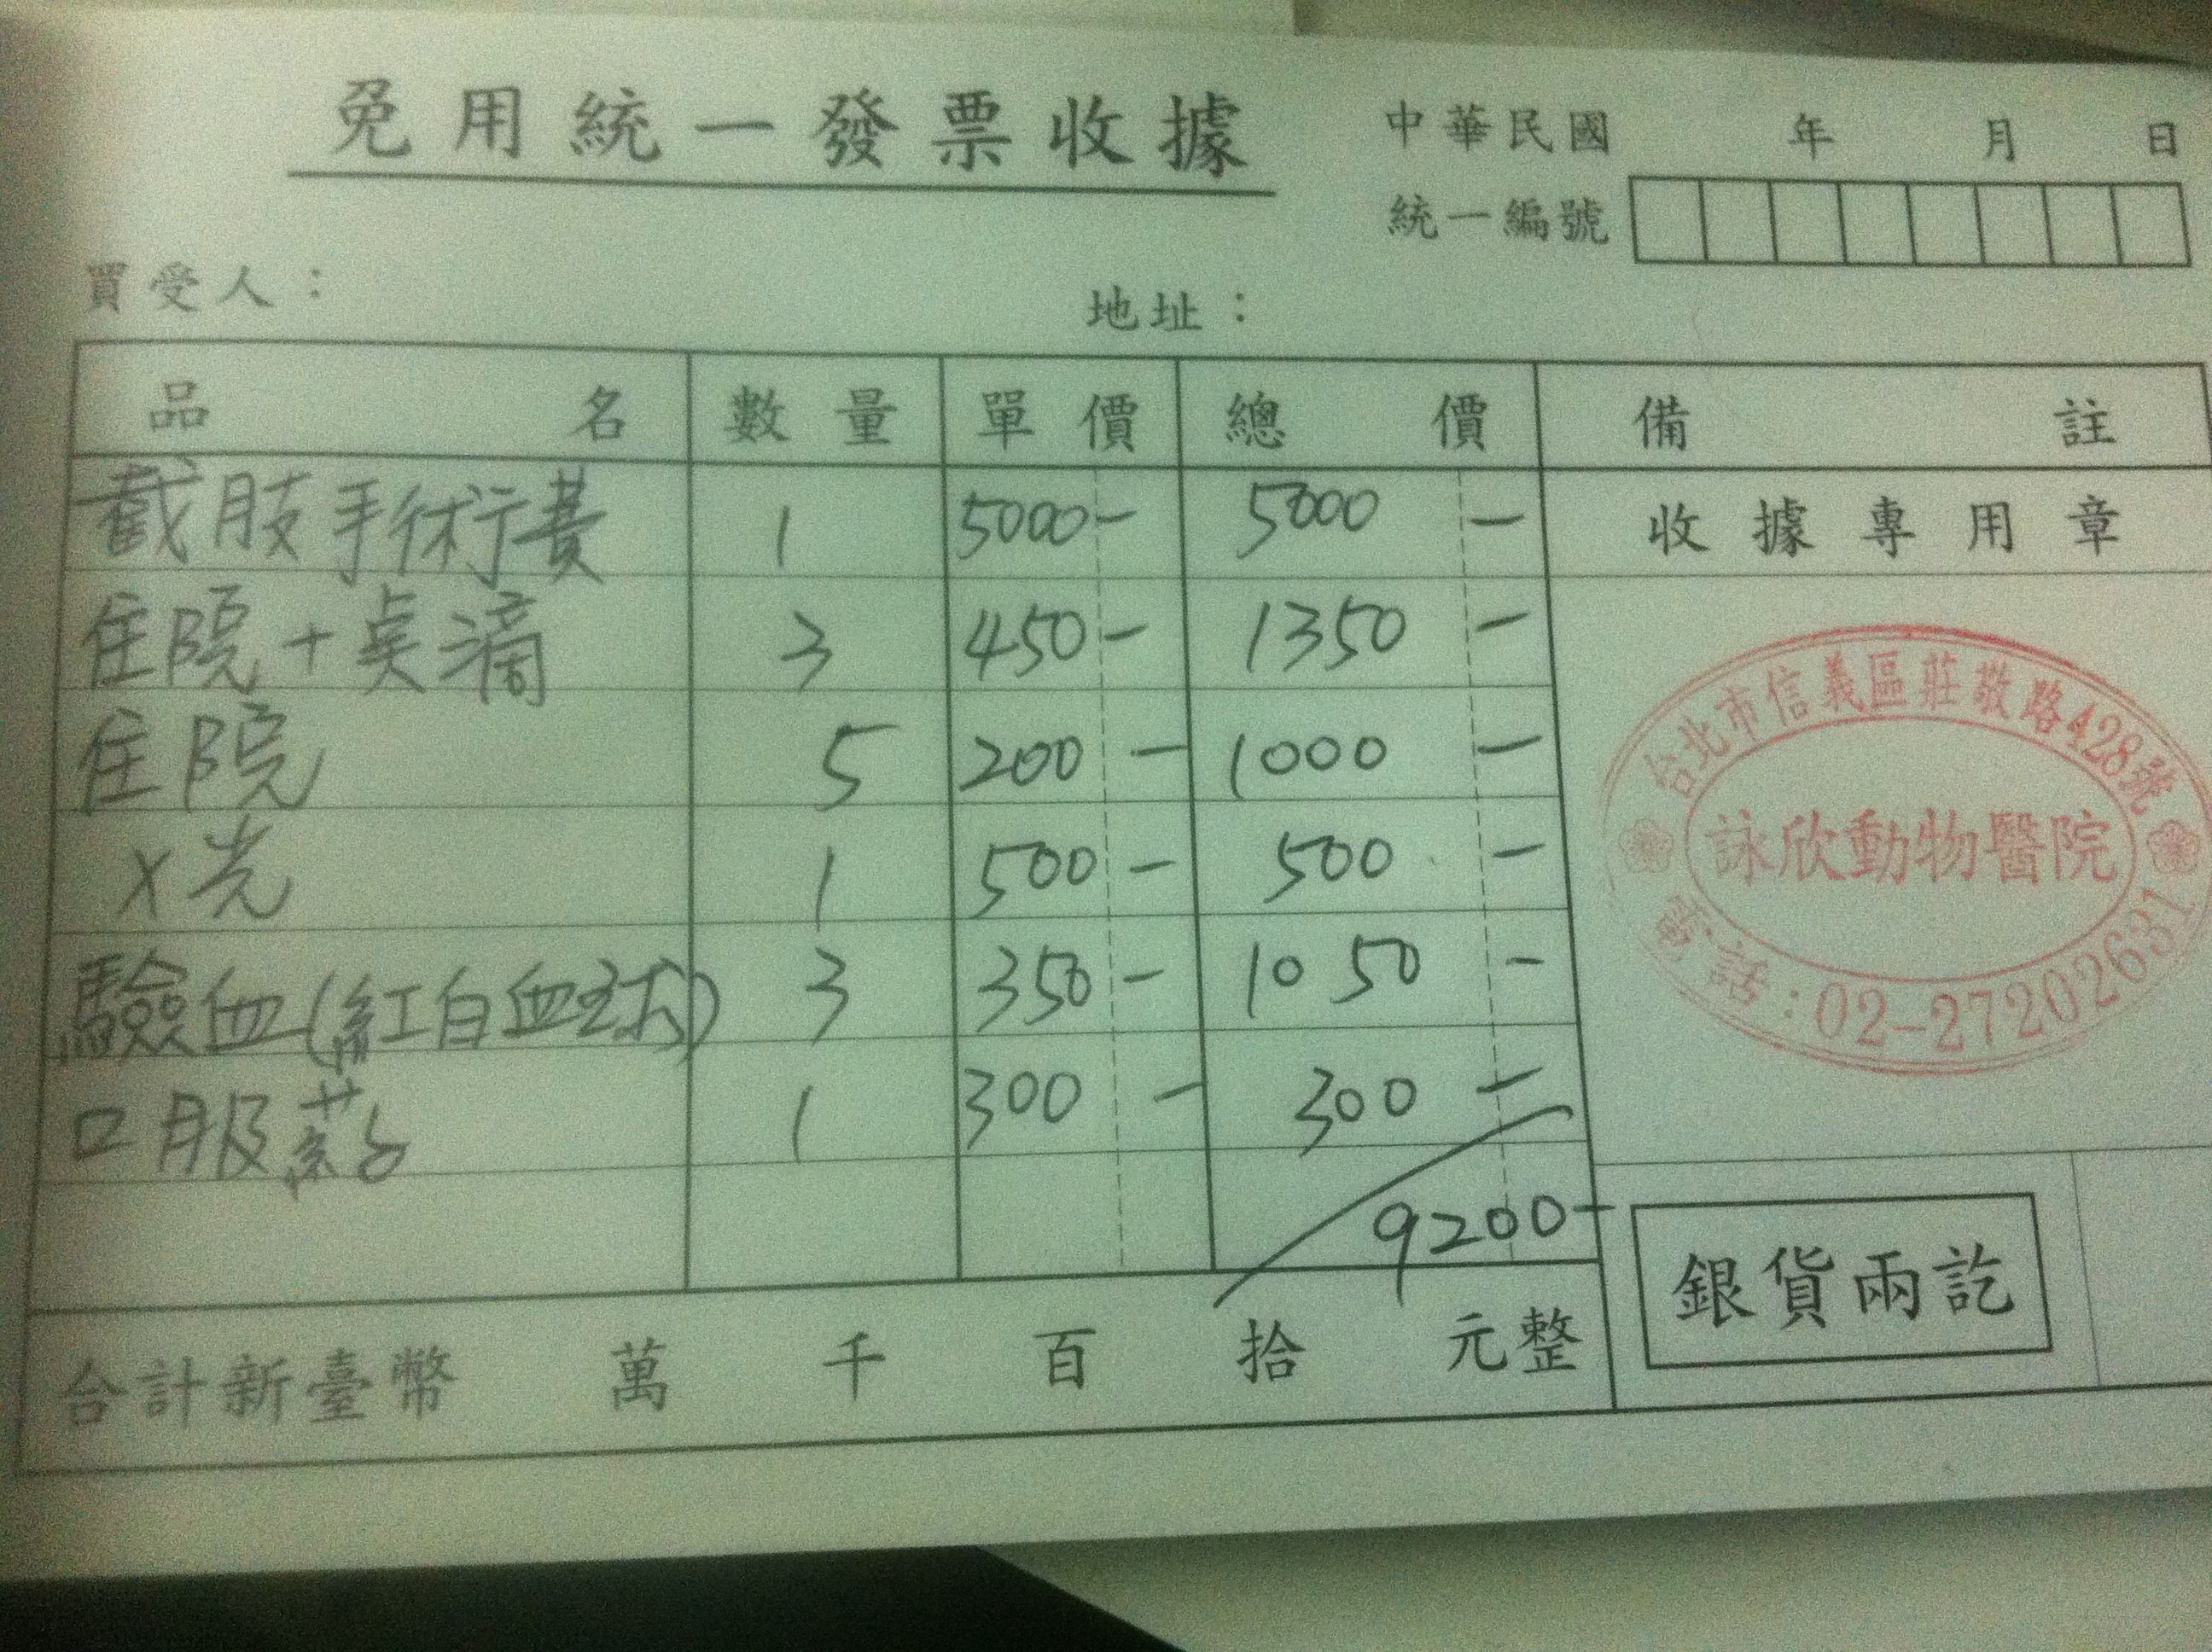 免用統一發票收據
中華民國 年 月 日
統一編號
買受人：
地址：
品名 數量 單價 總價 備註
截肢手術費 1 5000- 5000 -
收據專用章
住院+點滴 3 450- 1350 -
住院 5 200 - 1000 -
X光 1 500 - 500 -
驗血(紅白血球) 3 350 - 1050 -
口服葯 1 300 - 300 -
9200-
台北市信義區莊敬路428號
詠欣動物醫院
電話：02-27202631
銀貨兩訖
合計新臺幣 萬 千 百 拾 元整